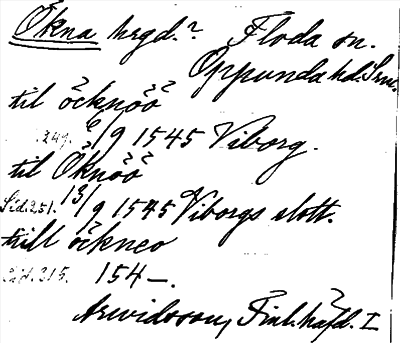 Ökna hrgd.? Floda sn.
Oppunda hd. Srm.
til öcknöö
S. 249. 6/9 1545 Viborg.
til Öknöö
Sid. 251. 13/9 1545 Viborgs slott.
till öckneo
Sid. 315. 154—.
Arwidsson, Finl. häfd. I